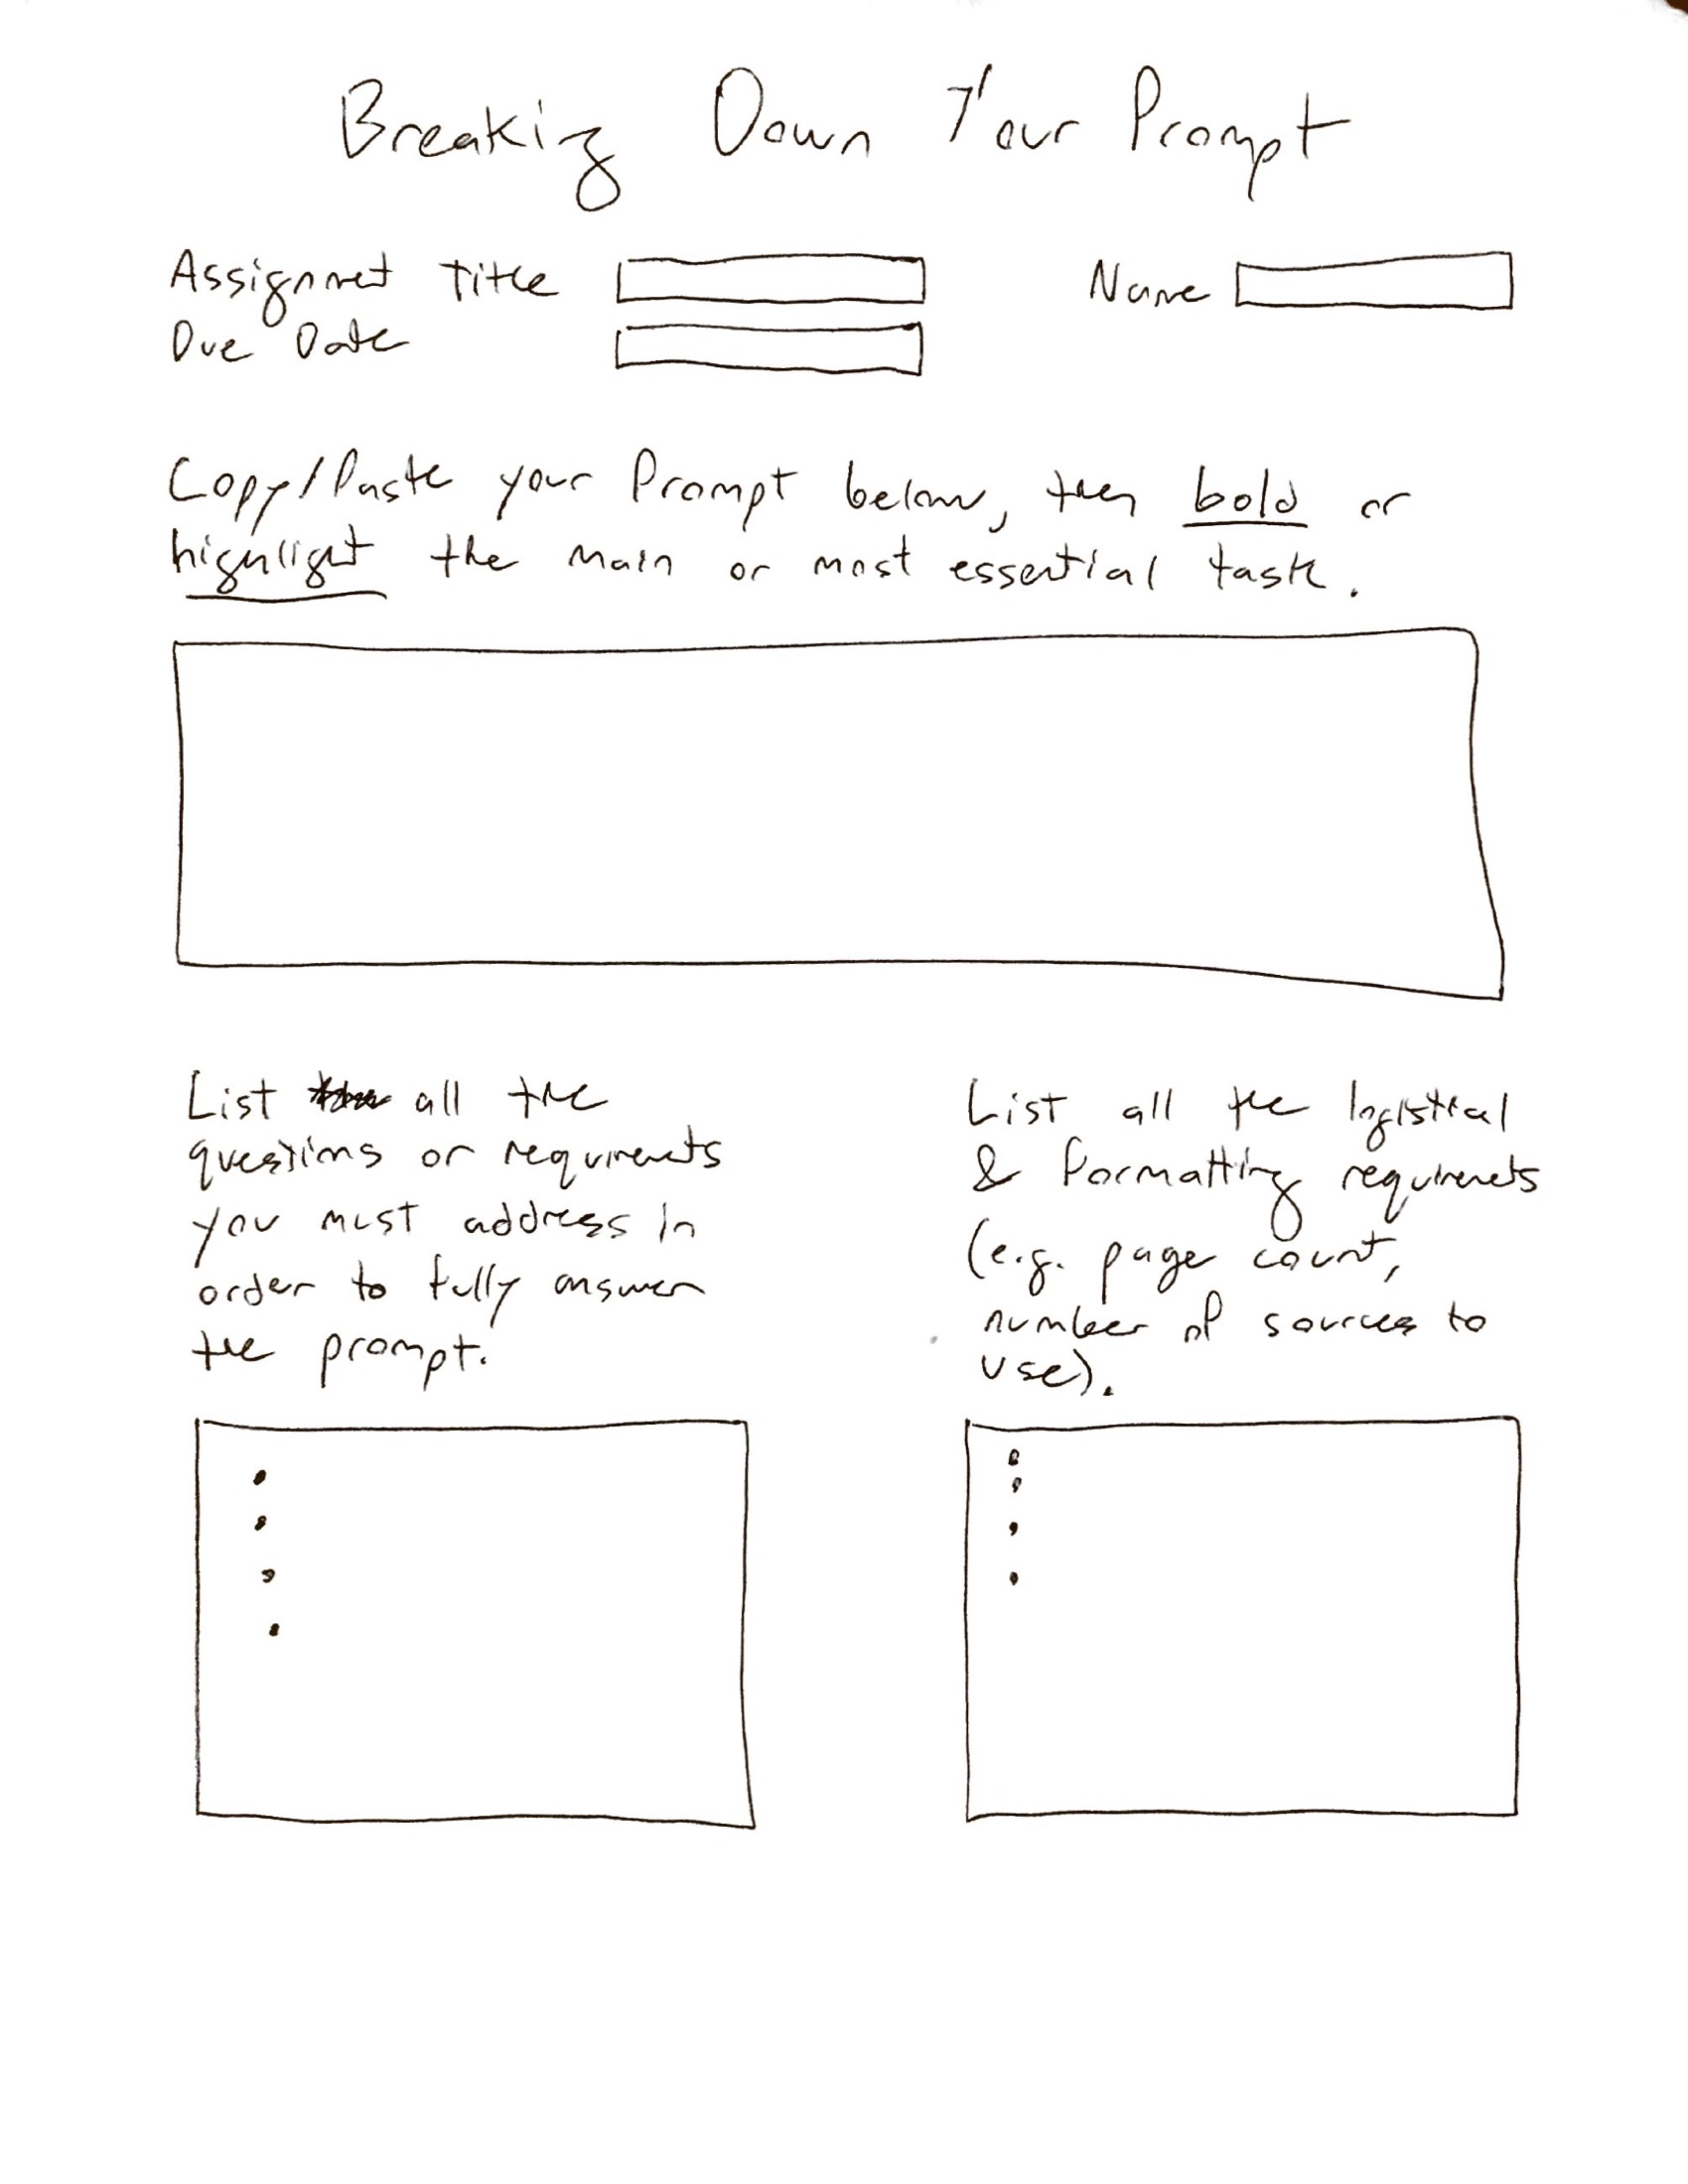 Breaking Down Your Prompt
Assignment Title Name
Due Date
Copy/Paste your Prompt below, then bold or
highlight the main or most essential task.
List all the
questions or requirements
you must address in
order to fully answer
the prompt.
List all the logistical
& Formatting requirements
(e.g. page count,
number of sources to
use).